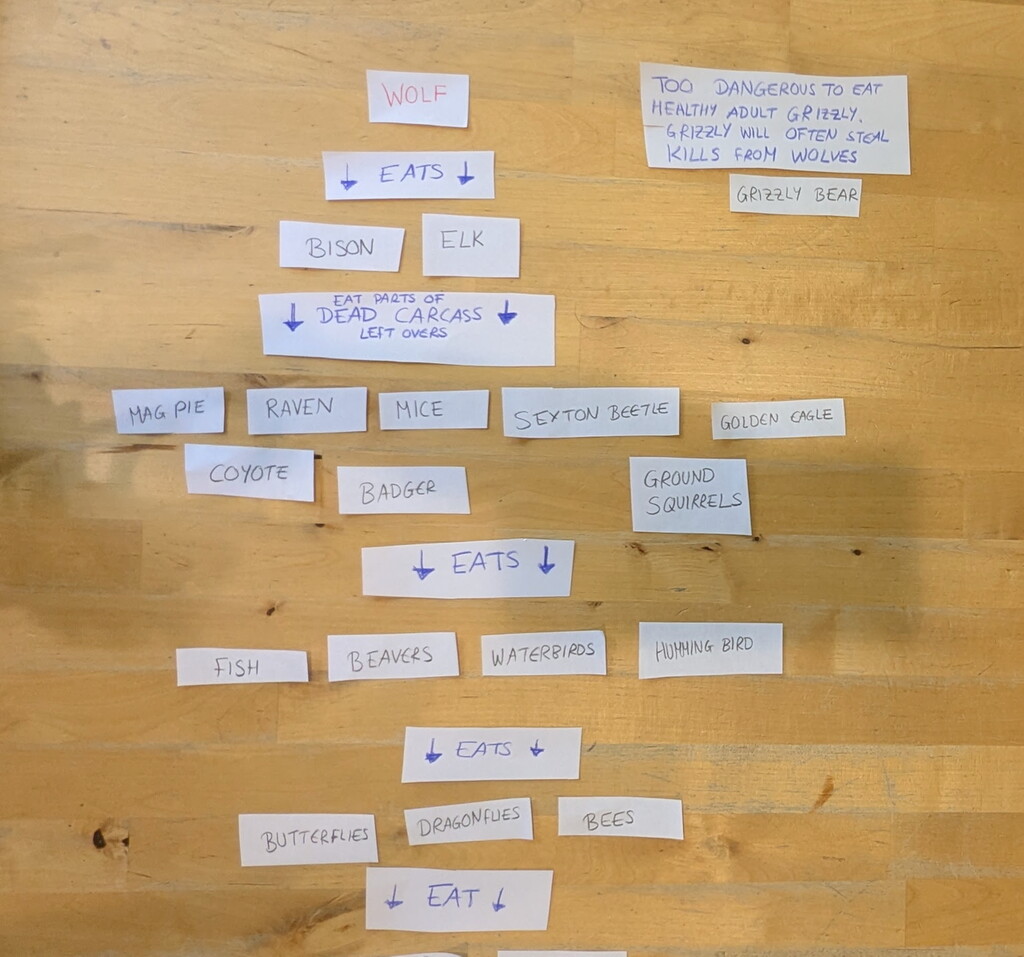 WOLF
TOO DANGEROUS TO EAT
HEALTHY ADULT GRIZZLY.
GRIZZLY WILL OFTEN STEAL
KILLS FROM WOLVES
↓ EATS ↓
GRIZZLY BEAR
BISON
ELK
EAT PARTS OF
↓ DEAD CARCASS ↓
LEFT OVERS
MAG PIE
RAVEN
MICE
SEXTON BEETLE
GOLDEN EAGLE
COYOTE
BADGER
GROUND
SQUIRRELS
↓ EATS ↓
FISH
BEAVERS
WATERBIRDS
HUMMING BIRD
↓ EATS ↓
BUTTERFLIES
DRAGONFLIES
BEES
↓ EAT ↓